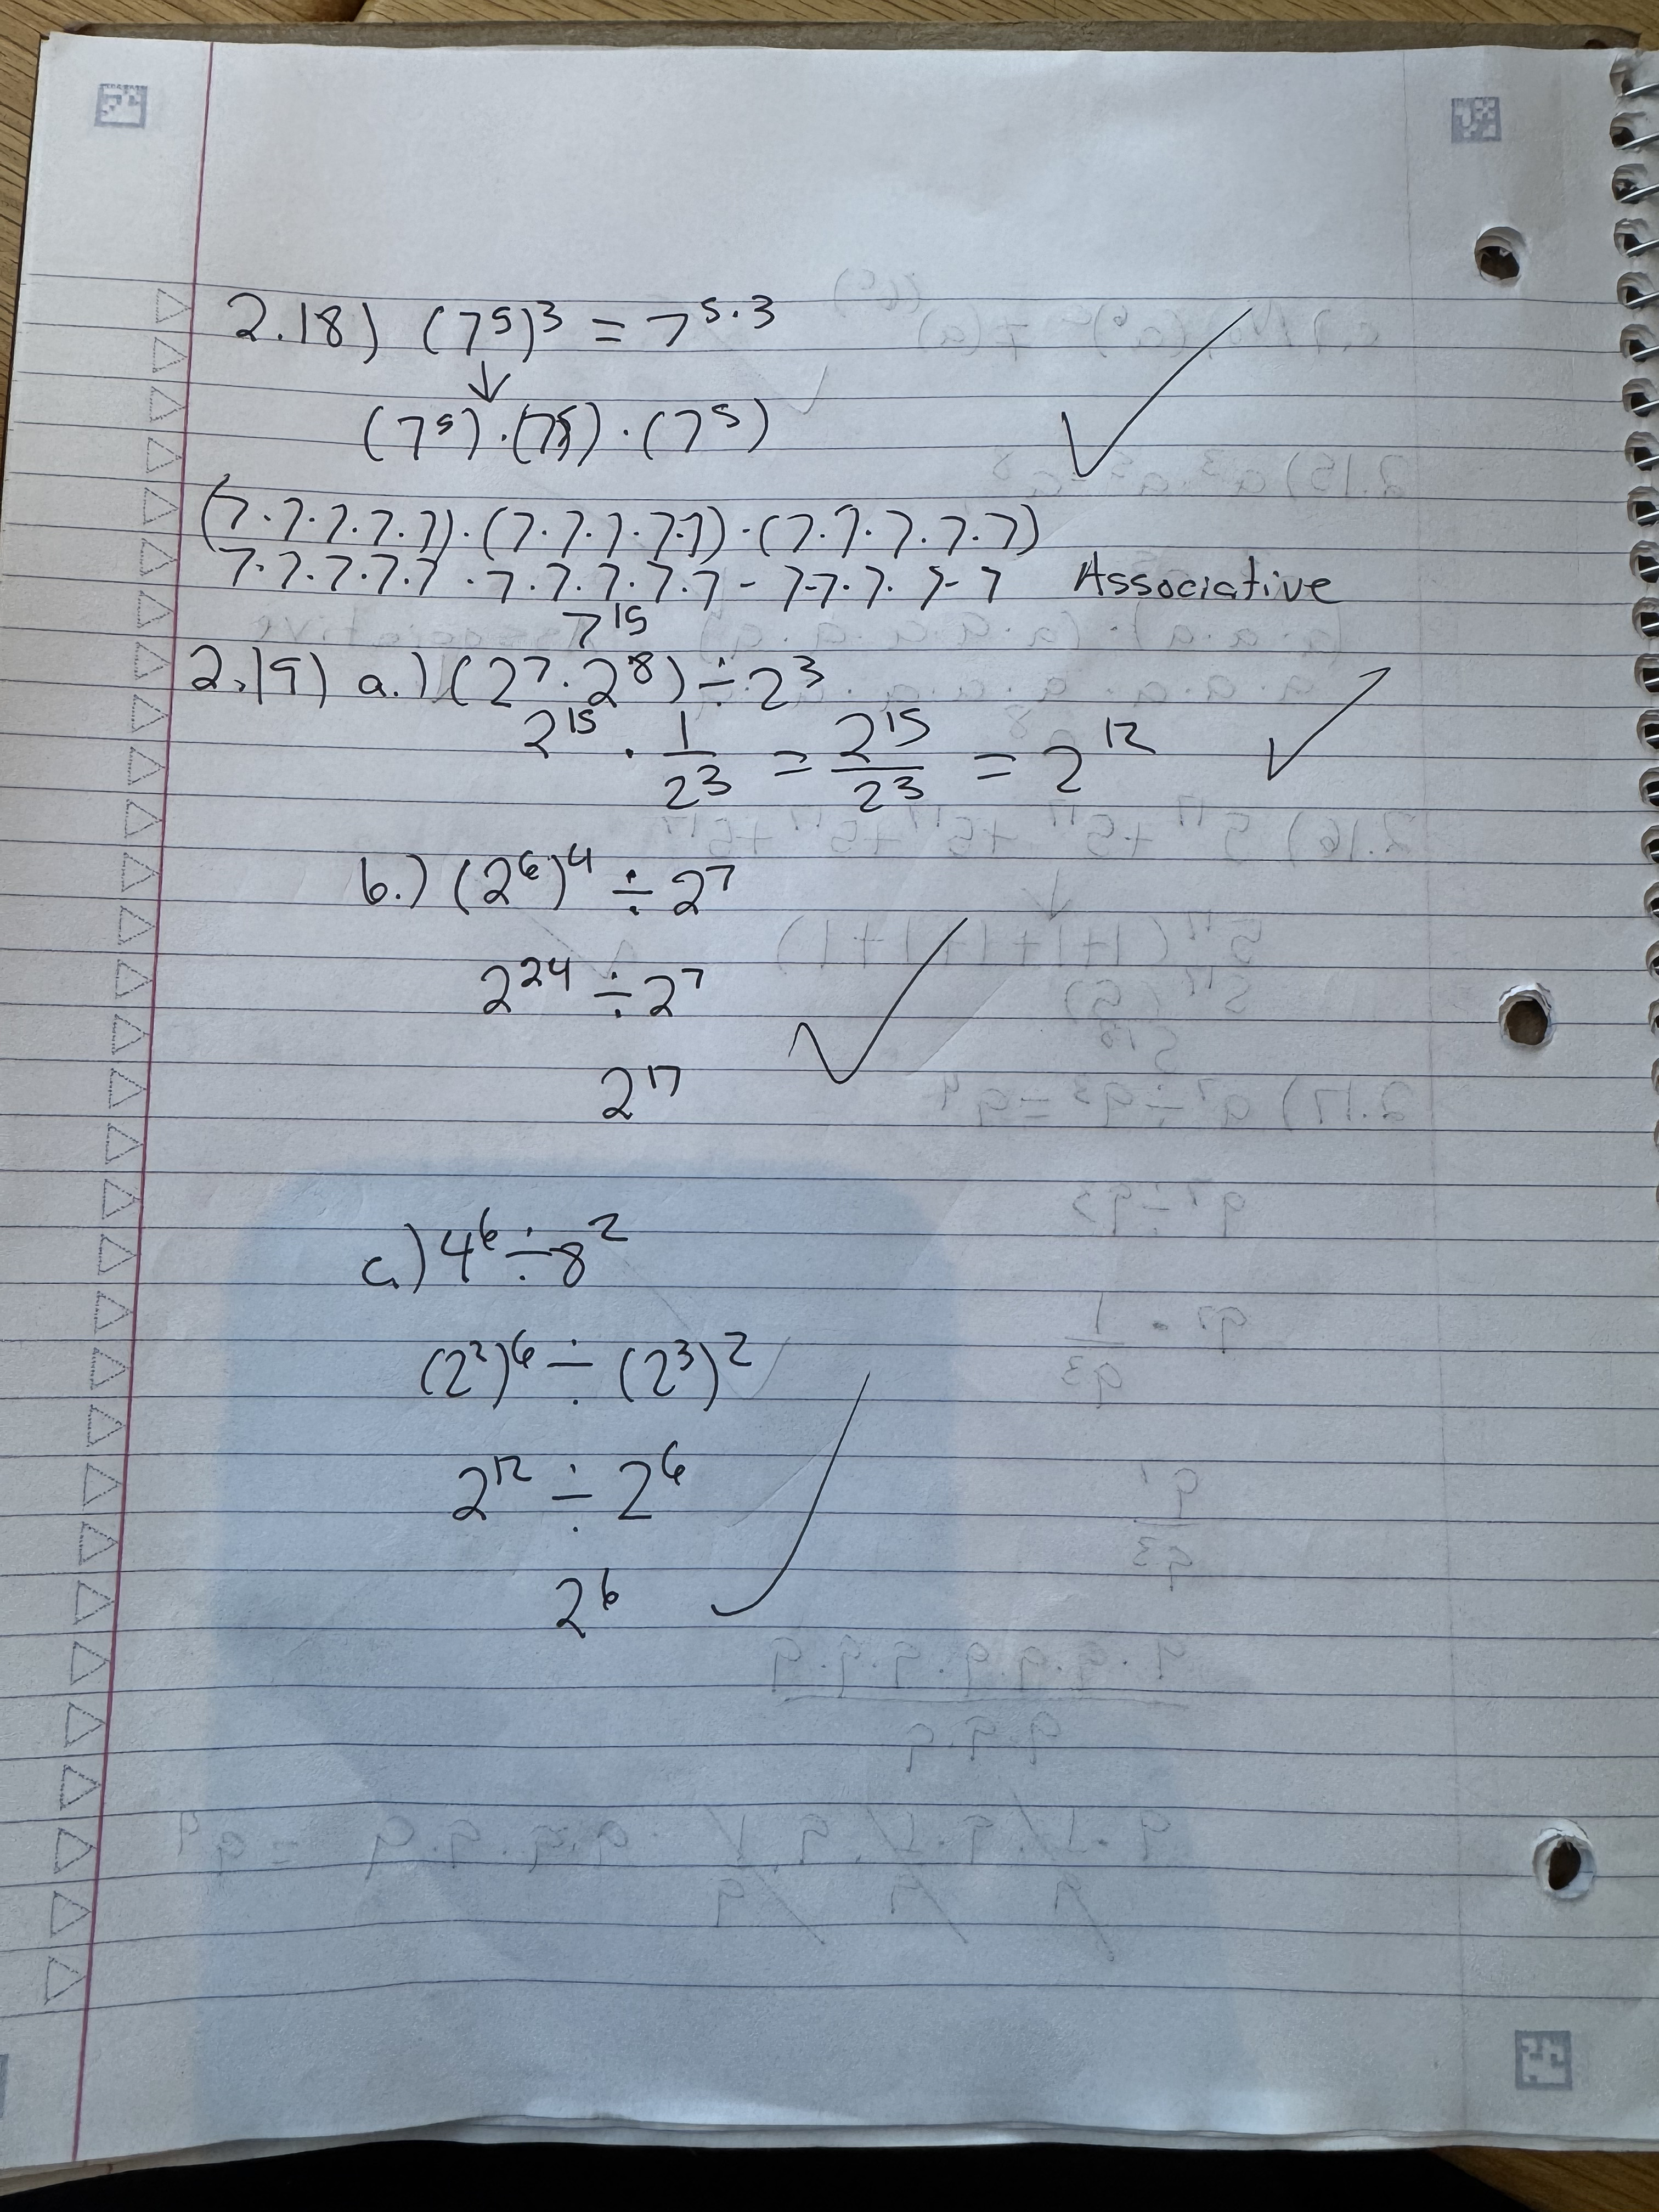 2.18) (7⁵)³ = 7⁵·³
↓
(7⁵)·(7⁵)·(7⁵)
(7·7·7·7·7)·(7·7·7·7·7)·(7·7·7·7·7)
7·7·7·7·7·7·7·7·7·7-7-7·7·7-7 Associative
7¹⁵
2.19) a.) (2⁷·2⁸) ÷ 2³
2¹⁵ · 1/2³ = 2¹⁵/2³ = 2¹²
b.) (2⁶)⁴ ÷ 2⁷
2²⁴ ÷ 2⁷
2¹⁷
c.) 4⁶ ÷ 8²
(2²)⁶ ÷ (2³)²
2¹² ÷ 2⁶
2⁶